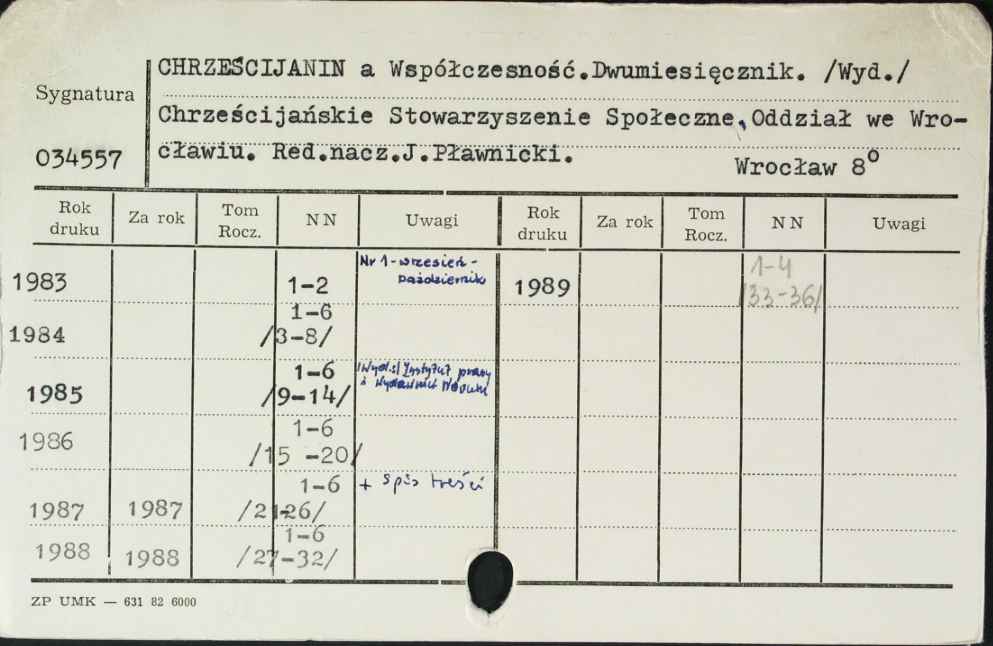 CHRZEŚCIJANIN a Współczesność.Dwumiesięcznik. /Wyd./
Sygnatura
Chrześcijańskie Stowarzyszenie Społeczne,Oddział we Wro-
034557
cławiu. Red.nacz.J.Pławnicki.
Wrocław 8°
Rok druku Za rok Tom Rocz. NN Uwagi Rok druku Za rok Tom Rocz. NN Uwagi
1983 1-2 Nr 1-wrzesień-październik 1989 1-4 /33-36/
1984 1-6 /3-8/
1985 1-6 /9-14/ /Wyd.:/ Instytut prasy i Wydawnictw Novum
1986 1-6 /15 -20/
1987 1987 1-6 /21-26/ + spis treści
1988 1988 1-6 /27-32/
ZP UMK — 631 82 6000